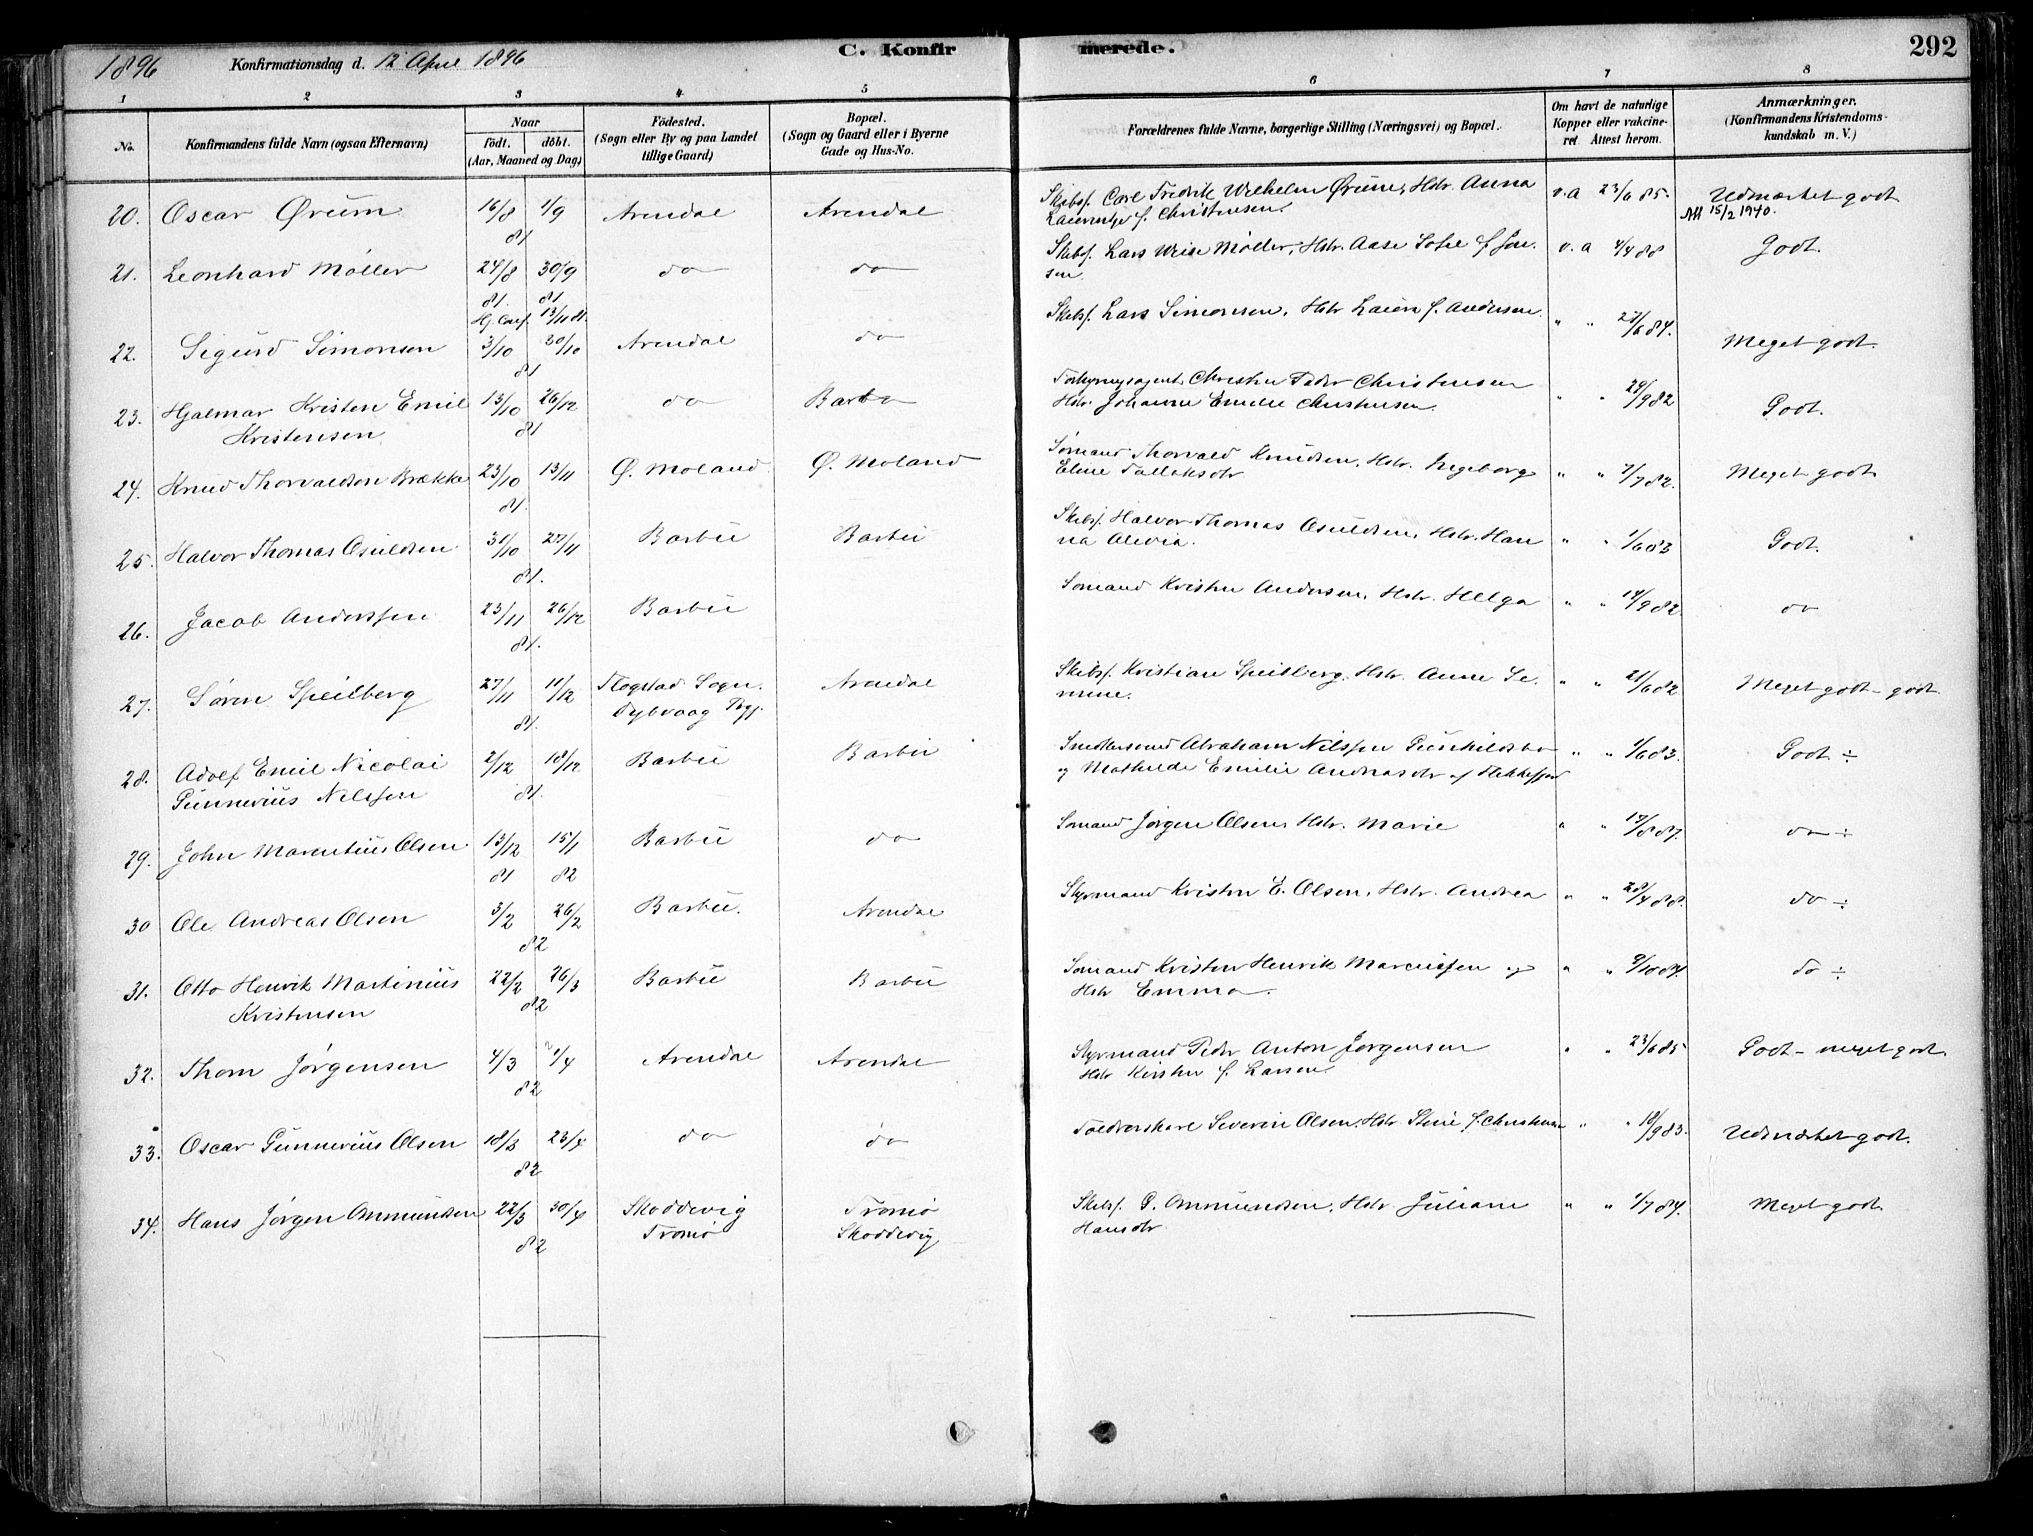 1896 Konfirmationsdag d. 12 April 1896 C. Konfirmerede. 292
1 2 3 4 5 6 7 8
No. Konfirmandens fulde Navn (ogsaa Efternavn) Naar födt. döbt. (Aar, Maaned og Dag) Födested. (Sogn eller By og paa Landet tillige Gaard) Bopæl. (Sogn og Gaard eller i Byerne Gade og Hus-No. Forældrenes fulde Navne, borgerlige Stilling (Næringsvei) og Bopæl. Om havt de naturlige Kopper eller vakcineret. Attest herom. Anmærkninger. (Konfirmandens Kristendomskundskab m. V.)
20. Oscar Ørum 16/8 1/9 81 Arendal Arendal Skibsf. Carl Fredrik Wilhelm Ørum, Hstr. Anna f. Christensen. v. a 23/6 85. Udmærket godt
Att 15/2 1940.
21. Leonhard Møller 24/8 81. 30/9 81 do do Skibsf. Lars Møller, Hstr. Aase Sofie f. Jensen v. a 4/4 88 Godt.
Hj. Conf. 13/11 81.
22. Sigurd Simonsen 3/10 30/10 81 Arendal do Skibsf. Lars Simonsen, Hstr f. Andersen. " " 27/6 84. Meget godt.
23. Hjalmar Kristen Emil Kristensen 13/10 26/12 81 do Barbo Christen Peder Christensen Hstr. Johanne Emilie Christensen. " " 29/9 82 Godt.
24. Knud Thorvaldsen Brække 23/10 13/11 81. Ø. Moland Ø. Moland Sømand Thorvald Knudsen, Hstr. Ingeborg Eline Tallaksdtr " " 7/7 82. Meget godt
25. Halvor Thomas Osuldsen 31/10 27/11 81. Barbu Barbu Skibsf. Halvor Thomas Osuldsen, Hstr. Hanna Olevia. " " 1/6 83 Godt.
26. Jacob Anderssen 23/11 26/12 81. Barbu Sømand Kristen Andersen, Hstr. Helga " " 19/9 82 do
27. Søren Speilberg 27/11 11/12 81. Flogstad Sogn. Dybvaag Pgj. Arendal Skibsf. Kristian Speilberg, Hstr. Anne Semine. " " 21/6 82 Meget godt - godt
28. Adolf Emil Nicolai Gunnerius Nilssen 2/12 18/12 81. Barbu Barbu Abraham Nilssen Gunhildsbo og Mathilde Emilie Andreasdtr " " 1/6 83. Godt ÷
29. John Marentius Olsen 13/12 81 15/1 82 Barbu do Sømand Jørgen Olsen, Hstr. Marie " " 17/8 87. do ÷
30 Ole Andreas Olsen 3/2 26/2 82 Barbu. Arendal Styrmand Kristen E. Olsen, Hstr. Andrea " " 28/4 88. do ÷
31. Otto Henrik Martinius Kristensen 22/2 26/3 82 Barbu Barbu Sømand Kristen Henrik Marcussen og Hstr Emma. " " 9/10 84. do ÷
32. Thom Jørgensen 4/3 1/4 82 Arendal Arendal Styrmand Peder Anton Jørgensen Hstr Kirsten f. Larsen. " " 23/6 85 Godt - meget godt
33. Oscar Gunnerius Olsen 18/3 23/4 82 do do Severin Olsen, Hstr. Stine f. Christensen " " 18/9 83. Udmærket godt.
34. Hans Jørgen Ommundsen 22/3 30/4 82 Skoddevig Tromø Tromø Skoddevig Skibsf. G. Ommundsen, Hstr Juliane Hansdtr " " 1/7 84. Meget godt.